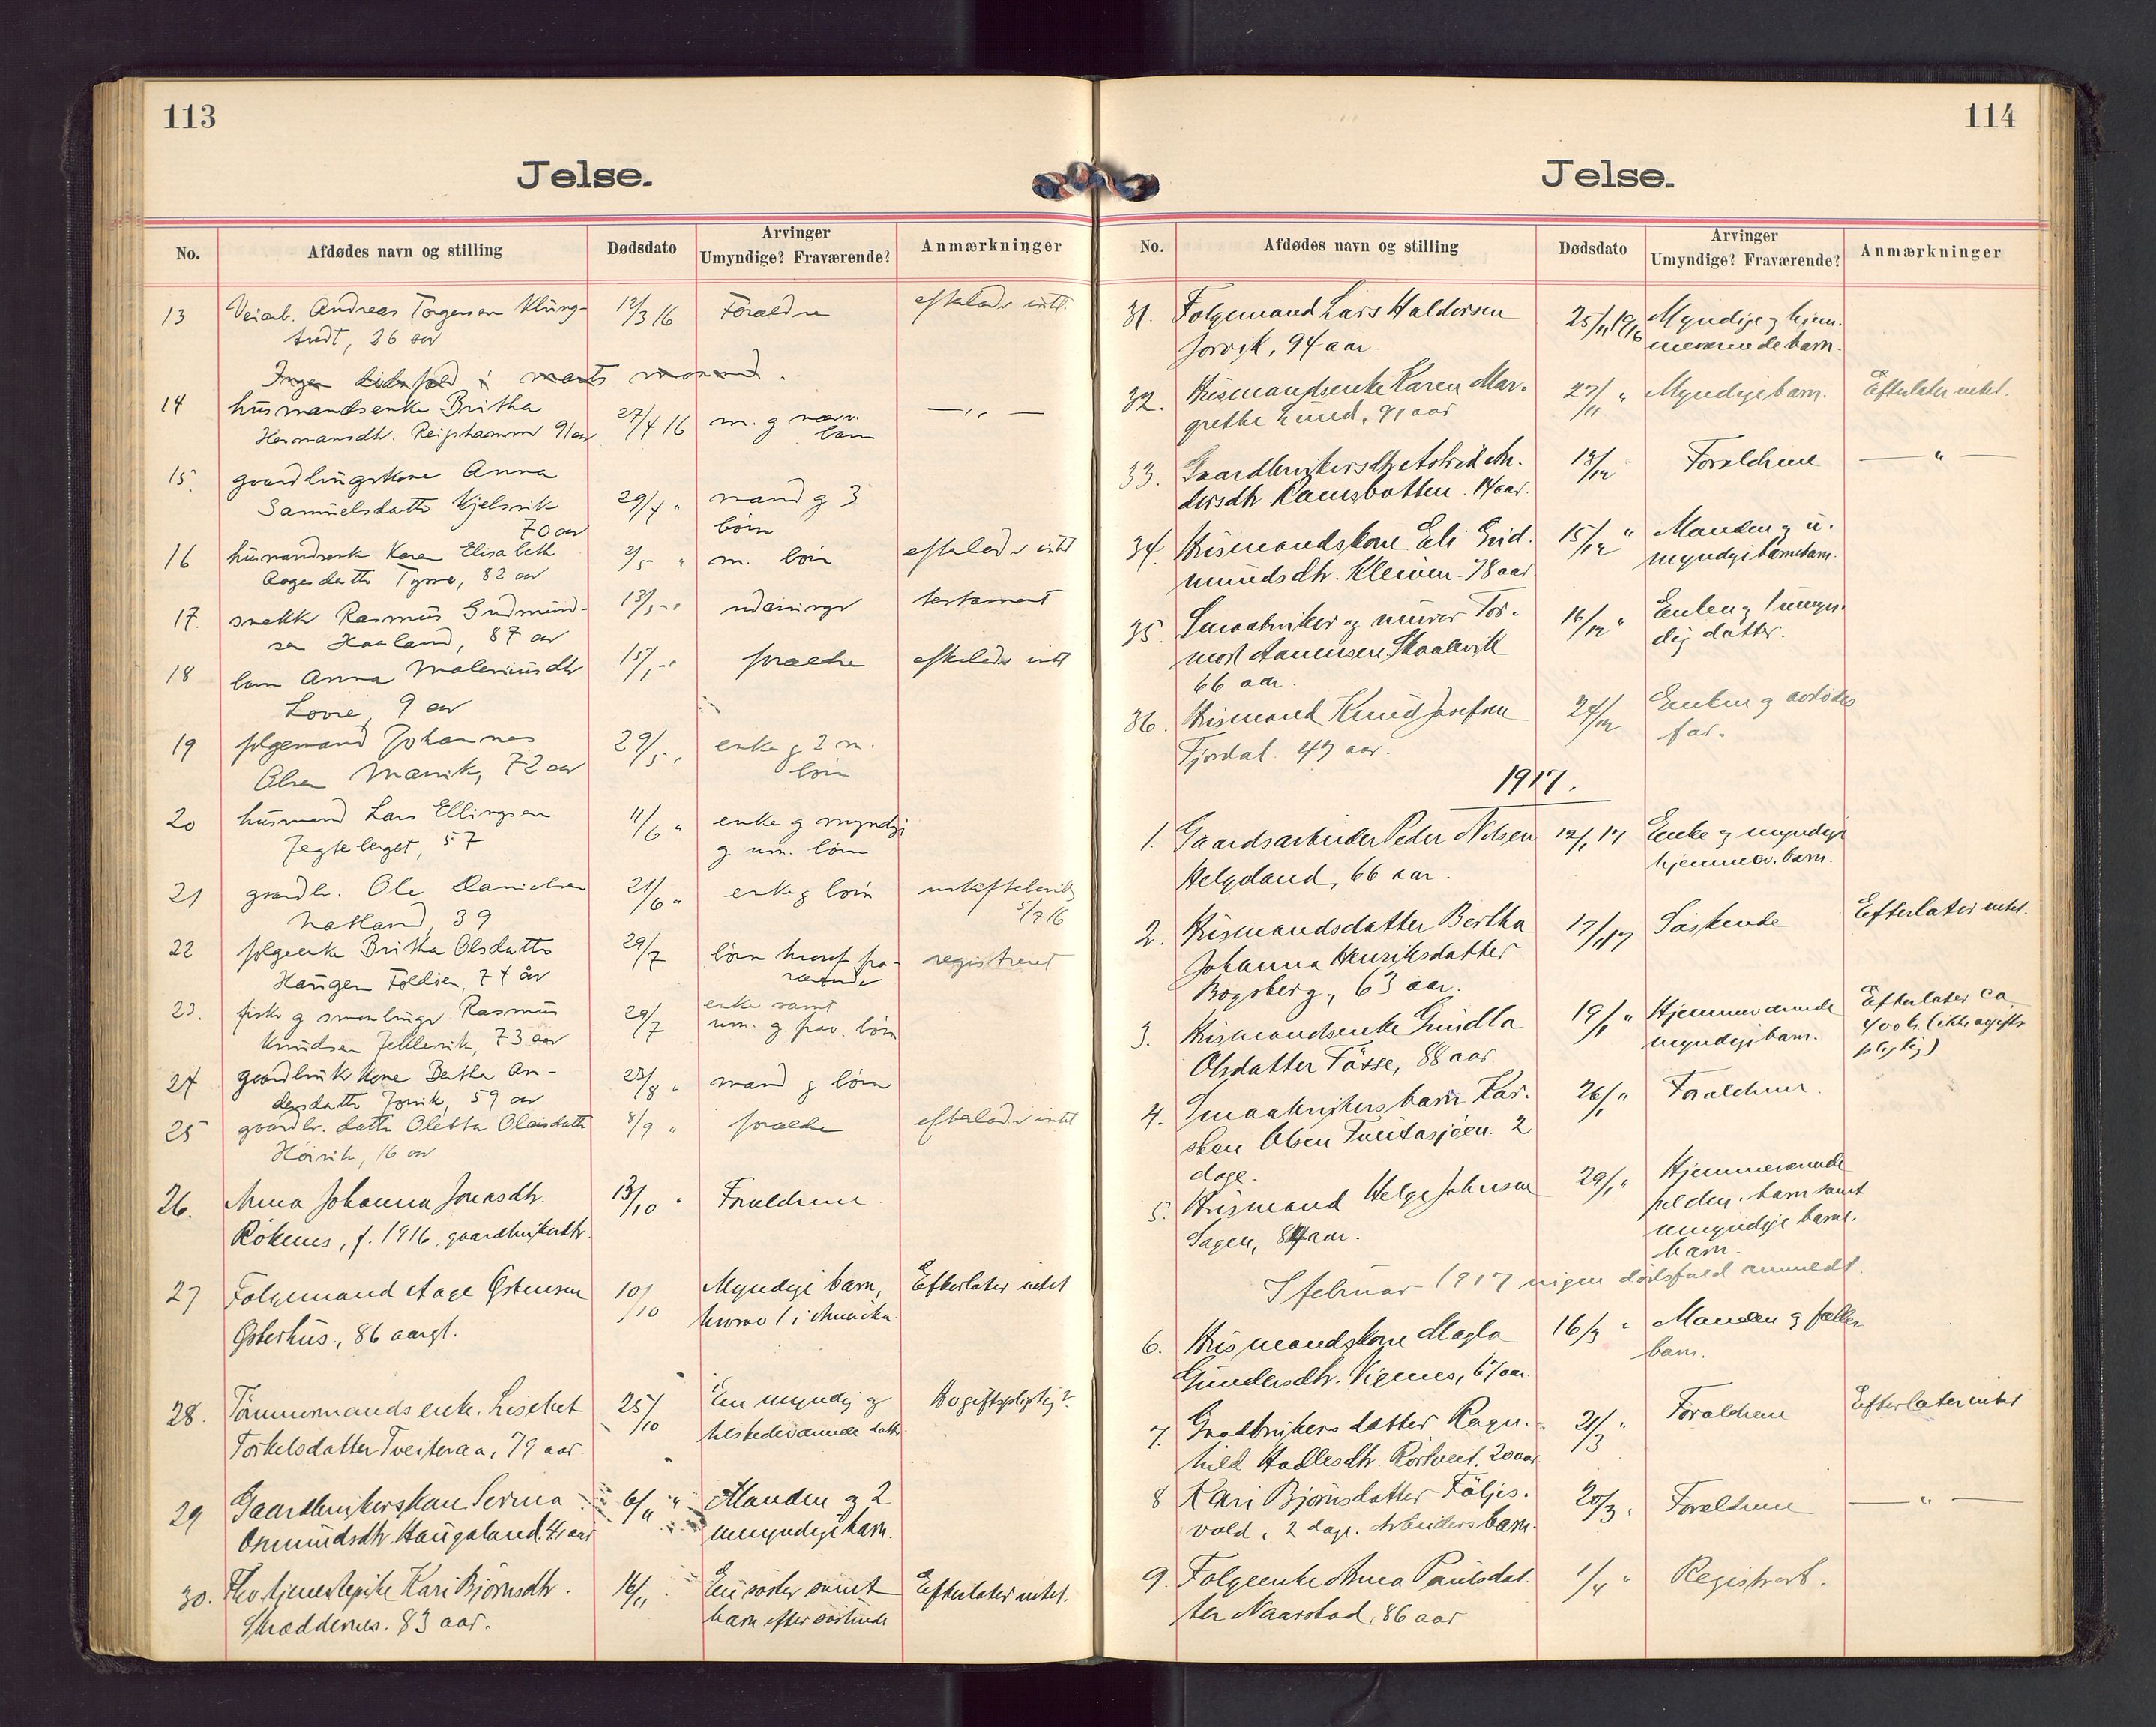 113
Jelse.
No.
Afdødes navn og stilling
Dødsdato
Arvinger
Umyndige? Fraværende?
Anmærkninger
13 Veiarb. Andreas Torgersen Kling- 12/3 16 Forældre efterlader intet.
tvedt, 26 aar
Ingen dødsfald i marts maaned.
14 husmandsenke Britha 27/4 16 m. og nærv. — „ —
Hermansdtr. Reipshammer 91 aar barn
15. gaardbrugerkone Anna
Samuelsdatter Kjelsvik 29/4 " mand og 3
70 aar børn
16 husmandsenke Karen Elisabeth 2/5 " m. børn efterlader intet
Aagesdatter Tysse, 82 aar
17. snekker Rasmus Gudmund- 13/5 " udarvinger testament
sen Haaland, 87 aar
18 barn Anna Maleniusdtr 15/5 " forældre efterlader intet
Lovre, 9 aar
19 folgemand Johannes 29/5 " enke og 2 m.
Olsen Marvik, 72 aar børn
20 husmand Lars Ellingsen 11/6 " enke og myndige
Jegteberget, 57 og um. børn
21 gaardbr. Ole Danielsen 21/6 " enke og børn uskiftebevilg
Natland, 39 5/7 16
22 folgeenke Britha Olsdatter 29/7 børn hvoraf fra- registreret
Haugen Foldøen, 74 år værende
23. fisker og smaabruger Rasmus 29/7 enke samt
Knudsen Jellevik, 73 aar um. og frav. børn
24 gaardbrukerkone Bertha An- 23/8 " mand og børn
dersdatter Jørvik, 59 aar
25 gaardbr. datter Oletta Olaisdatter 8/9 " forældre efterlader intet
Høivik, 16 aar
26. Anna Johanna Jonasdtr. 13/10 " Forældrene
Rökenes, f. 1916, gaardbrukerdtr.
27 Folgemand Aage Østensen 10/10 Myndige barn, Efterlater intet
Østerhus, 86 aar gl. hvorav 1 i Amerika
28. Tömmermandsenke Lisebet 25/10 En myndig og Avgiftspligtig?
Torkelsdatter Tveiteraa, 79 aar tilstedeværende datter
29 Gaardbrukerskone Serina 6/11 " Manden og 2
Osmundsdtr. Haugaland. 41 aar umyndige barn.
30. Fhv. tjenestepike Kari Björnsdtr. 16/11 " En søster samt Efterlater intet.
Skræddernes. 83 aar. barn efter söskende
114
Jelse.
No.
Afdødes navn og stilling
Dødsdato
Arvinger
Umyndige? Fraværende?
Anmærkninger
31. Folgemand Lars Haldorsen 25/11 1916 Myndige og hjem-
Jorvik, 94 aar. meværende barn.
32. Husmandsenke Karen Mar- 27/11 " Myndige barn. Efterlater intet.
grethe Lund, 91 aar
33. Gaardbrukersdtr. Astrid An- 13/12 Forældrene — " —
dersdtr. Ramsbotten. 14 aar.
34. Husmandskone Eli Gud- 15/12 " Manden og u-
mundsdtr. Kleiven. 78 aar myndige barnebarn.
35. Smaabruker og murer Tor- 16/12 " Enken og 1 umyn-
mod Aanensen Skaalvik dig datter.
66 aar.
36. Husmand Knud Josefsen 24/12 Enken og avdødes
Fjordal. 47 aar. far.
1917.
1. Gaardsarbeider Peder Nilsen 12/1 17 Enke og myndige
Helgeland, 66 aar. hjemmev. barn.
2. Husmandsdatter Bertha 17/1 17 Söskende Efterlater intet.
Johanna Henriksdatter
Bogsberg, 63 aar.
3. Husmandsenke Gundla 19/1 " Hjemmeværende Efterlater ca.
Olsdatter Fösse, 88 aar. myndige barn. 400 kr. (ikke avgifts
pligtig)
4. Smaabrukers barn Kar- 26/1 " Forældrene.
sten Olsen Tveitasjöen. 2
dage.
5. Husmand Helge Johnsen 29/1 " Hjemmeværende
Sagen, 84 aar. barn samt
umyndige barne-
barn.
I februar 1917 ingen dödsfald anmeldt.
6. Husmandskone Magla 16/3 " Manden og fælles
Gundersdtr. Vignes, 67 aar. barn.
7. Gaardbrukers datter Ragn- 21/3 " Forældrene Efterlater intet
hild Hadlesdtr. Rörtveit. 20 aar
8 Kari Björnsdatter Följes- 20/3 " Forældrene — " —
vold, 2 dage. Arbeidersbarn.
9. Folgeenke Anna Paulsdat- 1/4 " Registrert.
ter Naarstad, 86 aar